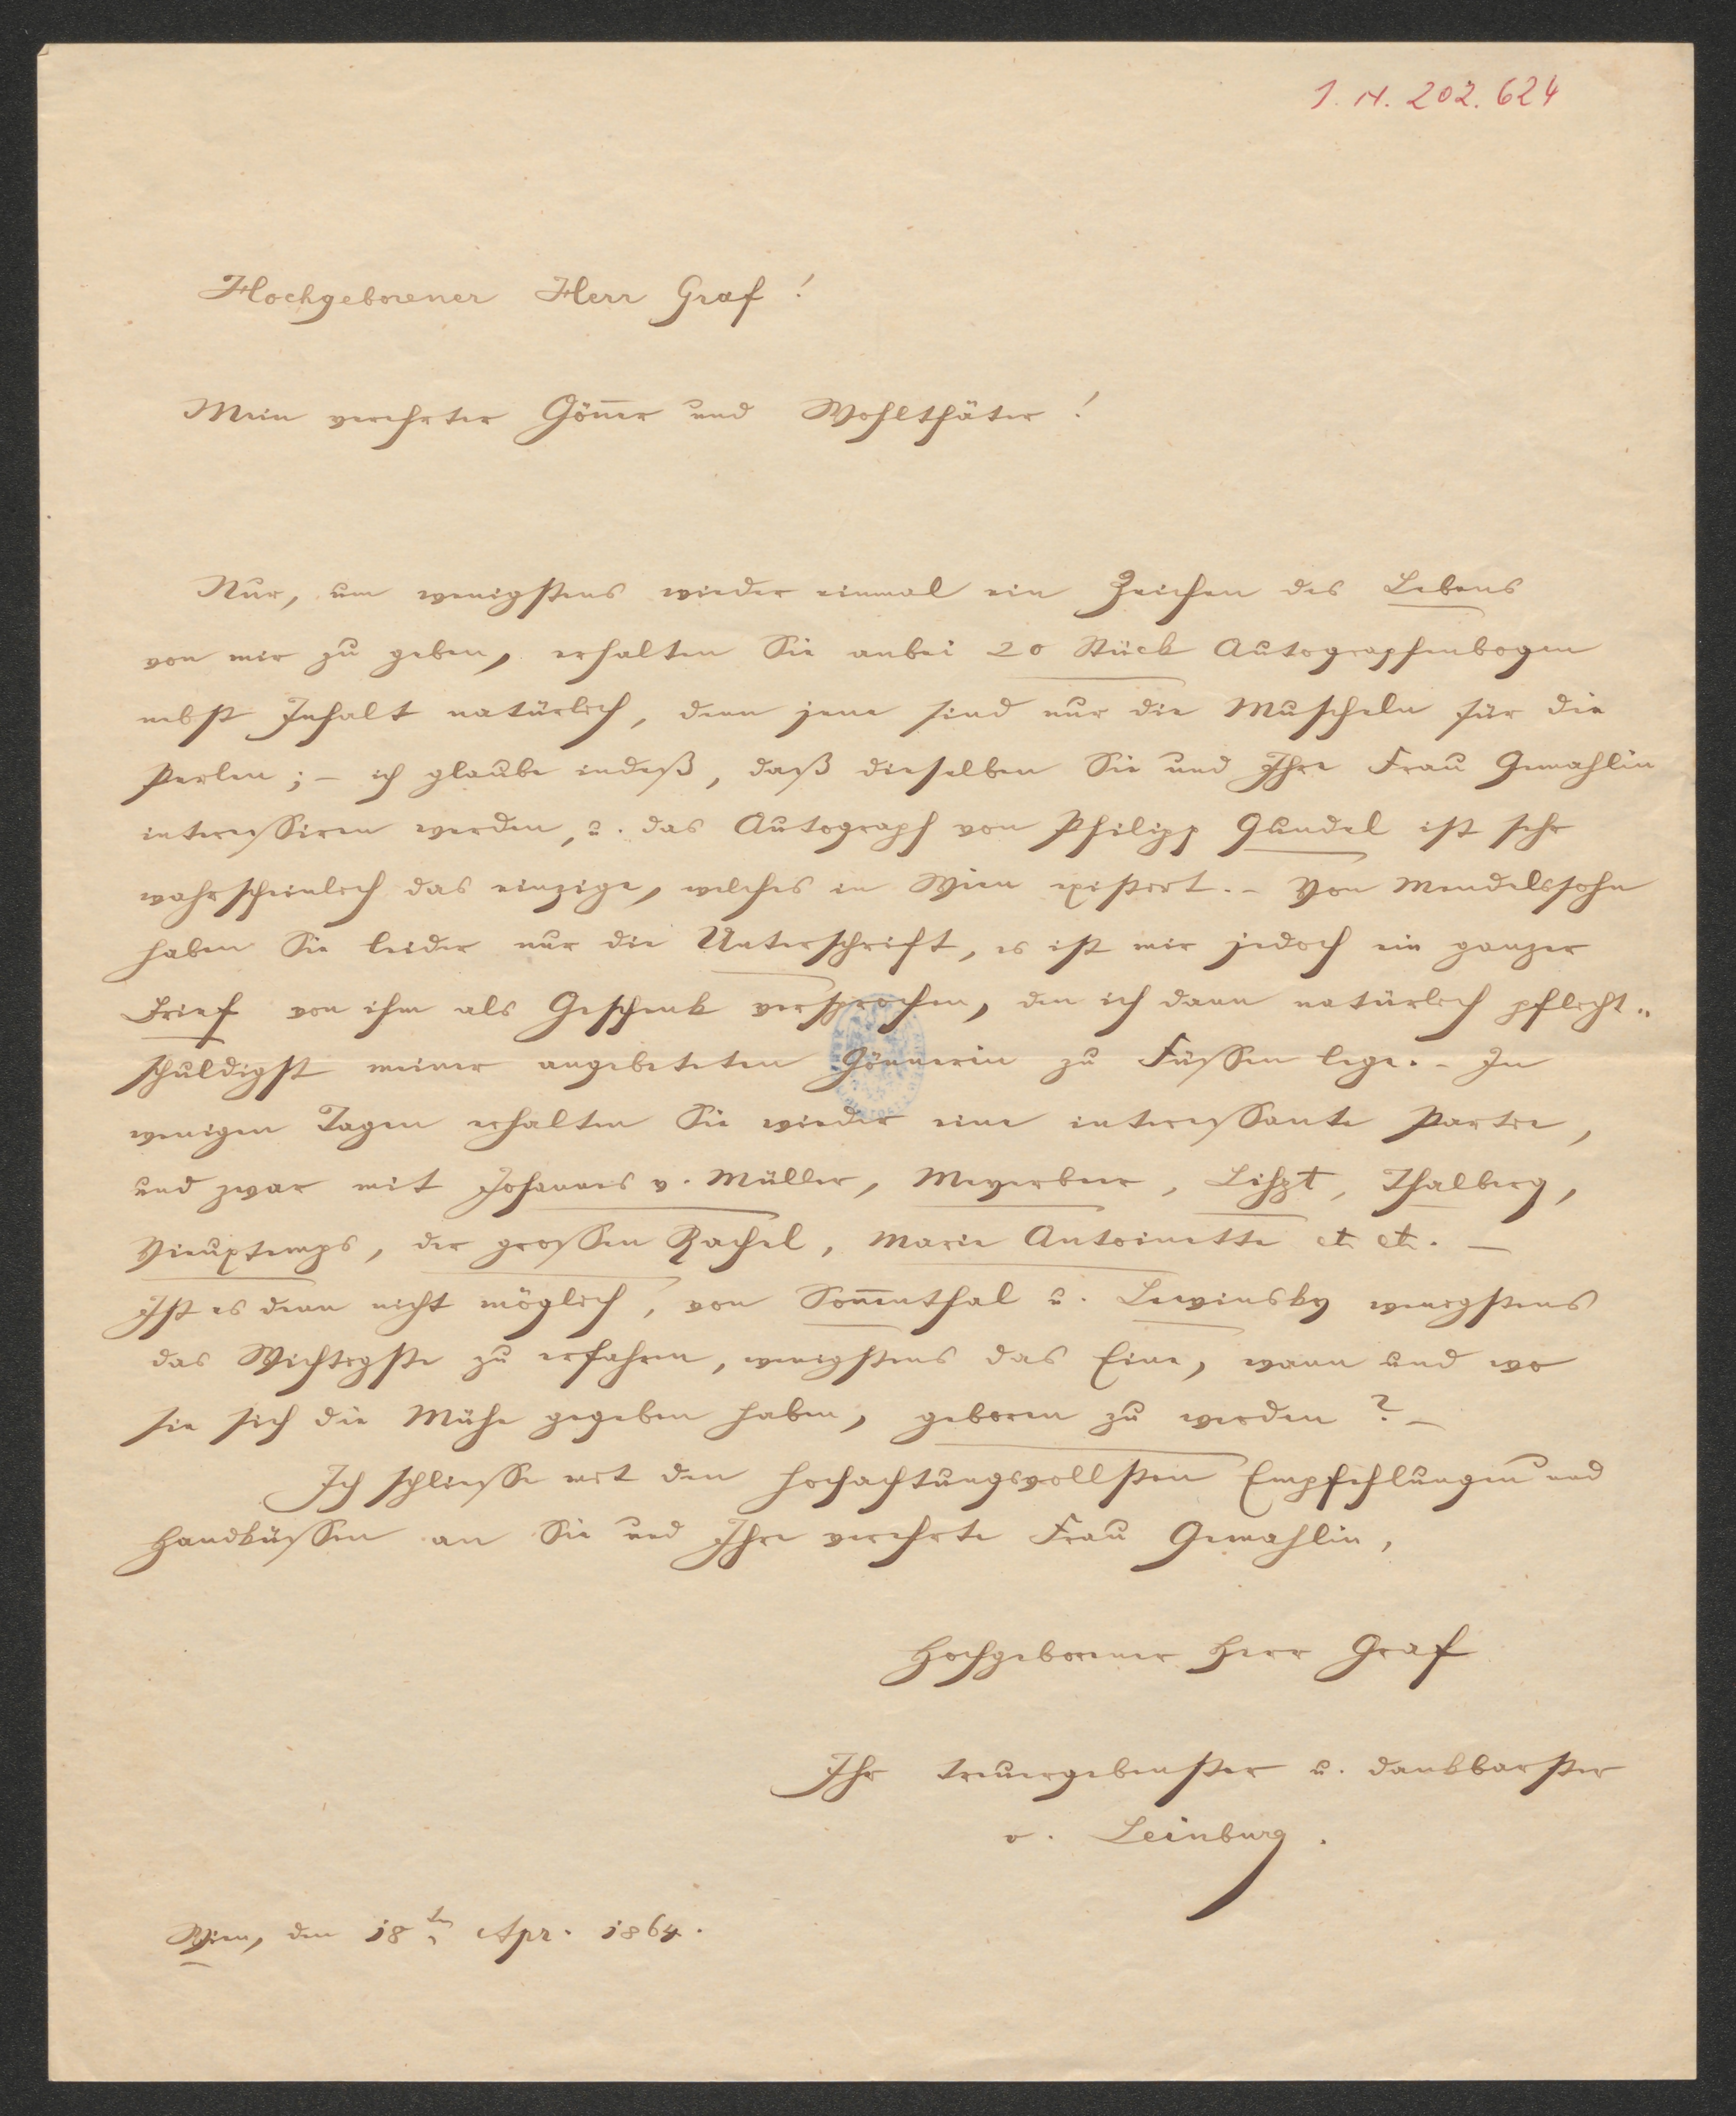 I. N. 202.624
Hochgeborener Herr Graf!
Mein verehrter Göner und Wohlthäter!
Nur, um wenigstens wieder einmal ein Zeichen des Lebens
von mir zu geben, erhalten Sie anbei 20 Stück Autographenbogen
nebst Inhalt natürlich, denn jene sind nur die Muscheln für die
Perlen; – ich glaube indeß, daß dieselben Sie und Ihre Frau Gemahlin
interessiren werden, u. das Autograph von Philipp Gundel ist sehr
wahrscheinlich das einzige, welches in Wien existirt. – Von Mendelssohn
haben Sie leider nur die Unterschrift, es ist mir jedoch ein ganzer
Brief von ihm als Geschenk versprochen, den ich dann natürlich pflicht-
schuldigst meiner angebeteten Gönnerin zu Füssen lege. – In
wenigen Tagen erhalten Sie wieder eine interessante Partie,
und zwar mit Johannes v. Müller, Meyerbeer, Liszt, Thalberg,
Vieuxtemps, der grossen Rachel, Marie Antoinette etc etc. –
Ist es denn nicht möglich, von Sonenthal u. Lewinsky wenigstens
das Wichtigste zu erfahren, wenigstens das Eine, wann und wo
sie sich die Mühe gegeben haben, geboren zu werden? –
Ich schliesse mit den hochachtungsvollsten Empfehlungen und
Handküssen an Sie und Ihre verehrte Frau Gemahlin,
Hochgeborener Herr Graf
Ihr treuergebenster u. dankbarster
v. Leinburg.
Wien, den 18ten Apr. 1864.